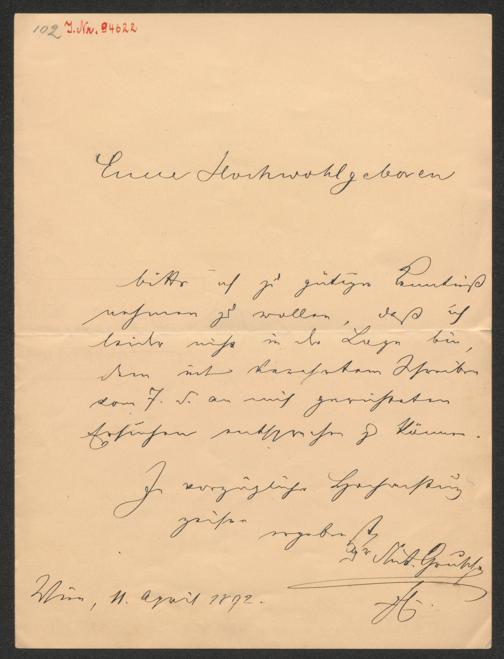 102 J. Nr. 94622
Euer Hochwohlgeboren
bitte ich zu gütiger Kenntniß
nehmen zu wollen, daß ich
leider nicht in der Lage bin,
dem mit verehrtem Schreiben
vom 7. d. an mich gerichteten
Ersuchen entsprechen zu können.
In vorzüglicher Hochachtung
zeichne ergebenst
Dr Ant.
Wien, 11. April 1892.